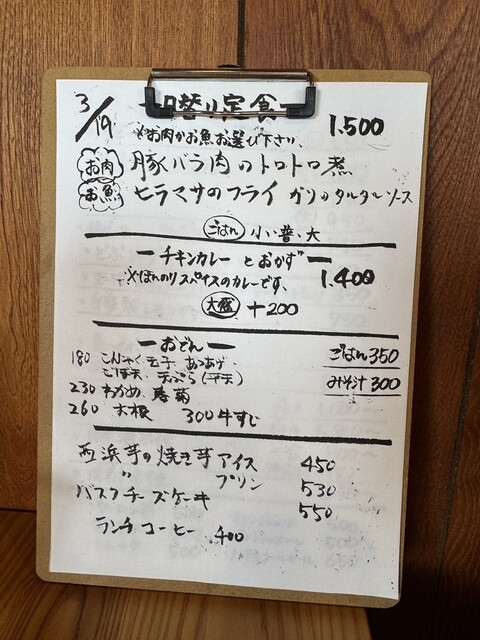 3/19 ー日替り定食ー 1.500
※お肉かお魚お選び下さい、
お肉 豚バラ肉のトロトロ煮
お魚 ヒラマサのフライ ガリのタルタルソース
ごはん 小、普、大
ーチキンカレーとおかずー 1.400
※ほんのりスパイスのカレーです、
大盛 +200
ーおでんー
ごはん350
みそ汁300
180 こんにゃく 玉子 あつあげ
ごぼ天、天ぷら(平天)
230 わかめ、春菊
260 大根 300牛すじ
西浜芋の焼き芋アイス 450
〃 プリン 530
バスクチーズケーキ 550
ランチコーヒー 400